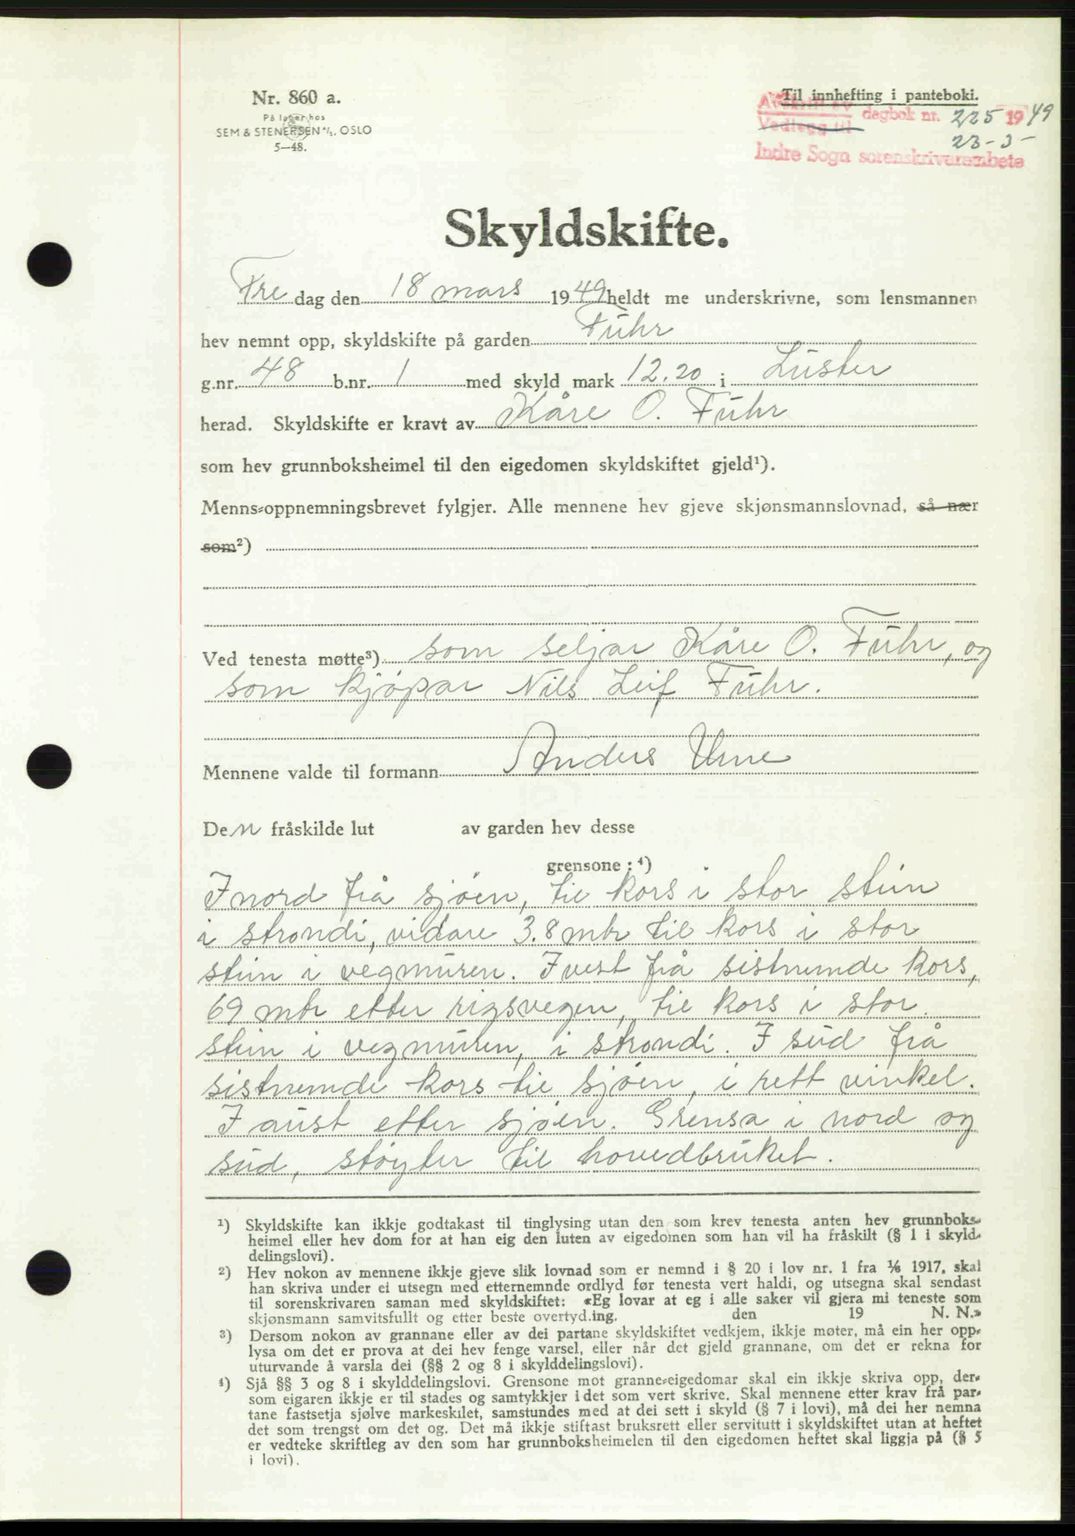 Nr. 860 a.
På lager hos
SEM & STENERSEN A/S, OSLO
5—48.
Til innhefting i panteboki.
Vedlegg til dagbok nr. 225 1949
23-3-
Indre Sogn sorenskrivarembete
Skyldskifte.
Fre dag den 18 mars 1949 heldt me underskrivne, som lensmannen
hev nemnt opp, skyldskifte på garden Fuhr
g.nr. 48 b.nr. 1 med skyld mark 12.20 i Luster
herad. Skyldskifte er kravt av Kåre O. Fuhr
som hev grunnboksheimel til den eigedomen skyldskiftet gjeld¹).
Menns-oppnemningsbrevet fylgjer. Alle mennene hev gjeve skjønsmannslovnad, så nær
som²)
Ved tenesta møtte³) som seljar Kåre O. Fuhr, og
som kjøpar Nils Leif Fuhr.
Mennene valde til formann Anders Urne
Den fråskilde lut av garden hev desse
grensone :⁴)
I nord frå sjöen, til kors i stor stein
i strondi, vidare 3.8 mtr til kors i stor
stein i vegmuren. I vest frå sistnemde kors,
69 mtr etter rigsvegen, til kors i stor
stein i vegmuren, i strondi. I sud frå
sistnemde kors til sjöen, i rett vinkel.
I aust etter sjöen. Grensa i nord og
sud, støyter til hovedbruket.
¹) Skyldskifte kan ikkje godtakast til tinglysing utan den som krev tenesta anten hev grunnboks-
heimel eller hev dom for at han eig den luten av eigedomen som han vil ha fråskilt (§ 1 i skyld-
delingslovi).
²) Hev nokon av mennene ikkje gjeve slik lovnad som er nemnd i § 20 i lov nr. 1 fra 1/6 1917, skal
han skriva under ei utsegn med etternemnde ordlyd før tenesta vert haldi, og utsegna skal sendast
til sorenskrivaren saman med skyldskiftet: «Eg lovar at eg i alle saker vil gjera mi teneste som
skjønsmann samvitsfullt og etter beste overtyd.ing. den 19 N. N.»
³) Dersom nokon av grannane eller av dei partane skyldskiftet vedkjem, ikkje møter, må ein her opp-
lysa om det er prova at dei hev fenge varsel, eller når det gjeld grannane, om det er rekna for
uturvande å varsla dei (§§ 2 og 8 i skylddelingslovi).
⁴) Sjå §§ 3 og 8 i skylddelingslovi. Grensone mot granne-eigedomar skal ein ikkje skriva opp, der-
som eigaren ikkje er til stades og samtykkjer i det som vert skrive. Skal mennene etter krav frå par-
tane fastsetja sjølve markeskilet, samstundes med at dei sett i skyld (§ 7 i lovi), må dei her nemna
det som trengst om det og. Det må ikkje stiftast bruksrett eller servitutt i skyldskiftet utan at heftet
er vedteke skriftleg av den som har grunnboksheimelen til den eigedomen heftet skal liggja på (§ 5
i lovi).